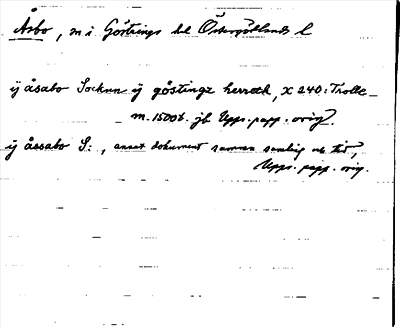 Åsbo, sn i Göstrings hd Östergötlands l
ij åsabo Socknn ij göstingz herreth, X 240: Trolle-
m. 1500t. jb Upps. papp. orig.
ij åssabo S:, annat dokument samma samling o. tid,
Upps. papp. orig.